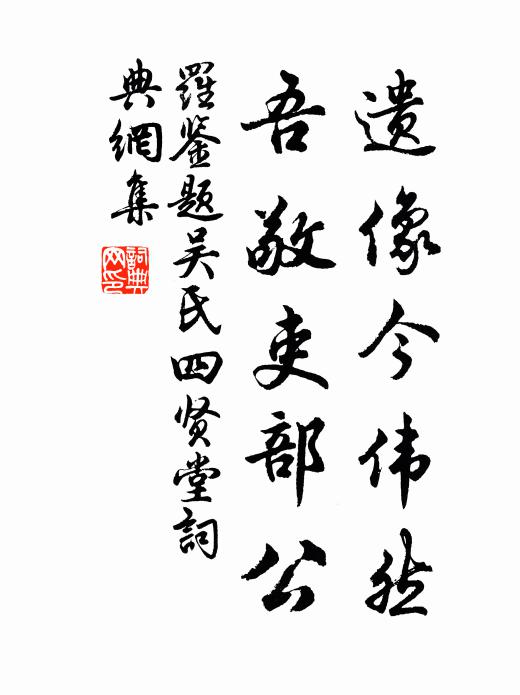 遗像今伟然
吾敬吏部公
羅鉴题吴氏四贤堂詞
典網集
詞典网印